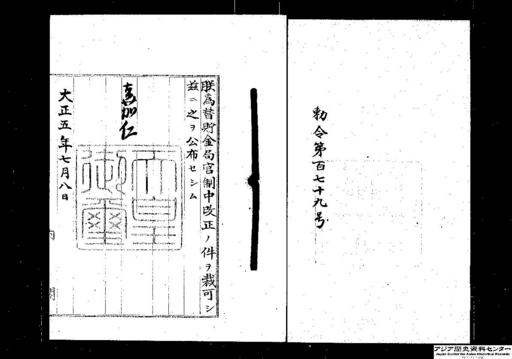 勅令第百七十九号
朕為替貯金局官制中改正ノ件ヲ裁可シ
茲ニ之ヲ公布セシム
嘉仁
天皇御璽
大正五年七月八日
内閣
アジア歴史資料センター
Japan Center for Asian Historical Records